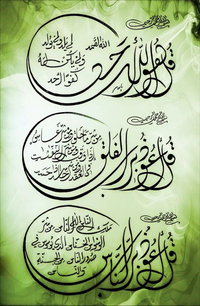 بسم الله الرحمن الرحيم
قل هو الله أحد
الله الصمد
لم يلد ولم يولد
ولم يكن له
كفوا أحد
بسم الله الرحمن الرحيم
قل أعوذ برب الفلق
من شر ما خلق ومن شر غاسق
إذا وقب ومن شر النفاثات
في العقد ومن شر حاسد
إذا حسد
بسم الله الرحمن الرحيم
قل أعوذ برب الناس
ملك الناس إله الناس من شر
الوسواس الخناس الذي يوسوس في
صدور الناس من الجنة
والناس